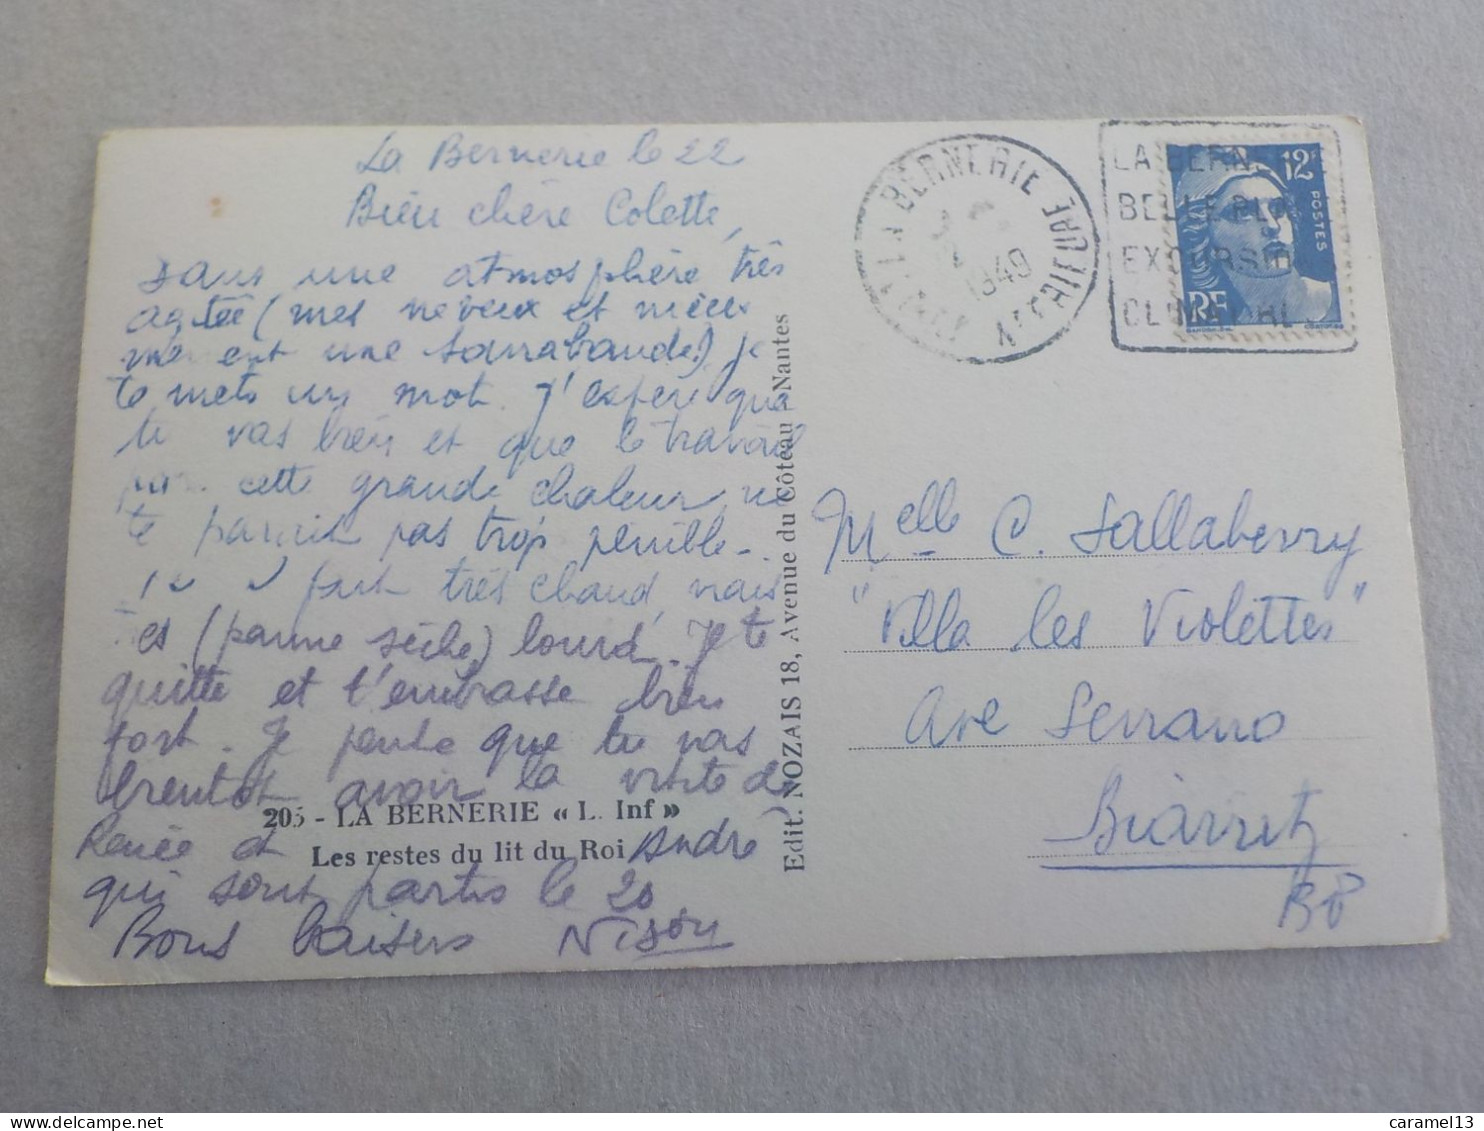 La Bernerie le 22
Bien chère Colette,
dans une atmosphère très
agitée (mes neveux et nièces
mènent une sarrabande!) je
te mets un mot. J'espère que
tu vas bien et que le travail
par cette grande chaleur ne
te parait pas trop pénible -
fait très chaud, mais
(panne sèche) lourd. Je te
quitte et t'embrasse bien
fort. Je pense que tu vas
bientôt avoir la visite de
Renée et André
qui sont partis le 20
Bons baisers Nison
205 - LA BERNERIE « L. Inf »
Les restes du lit du Roi
Edit. NOZAIS 18, Avenue du Côteau - Nantes
LA BERNERIE
1949
LA BERN
BELLE PL
EXCURSIO
CL
12F
POSTES
RF
Melle C. Sallaberry
"Villa les Violettes"
Ave Serrano
Biarritz
BP
caramel13